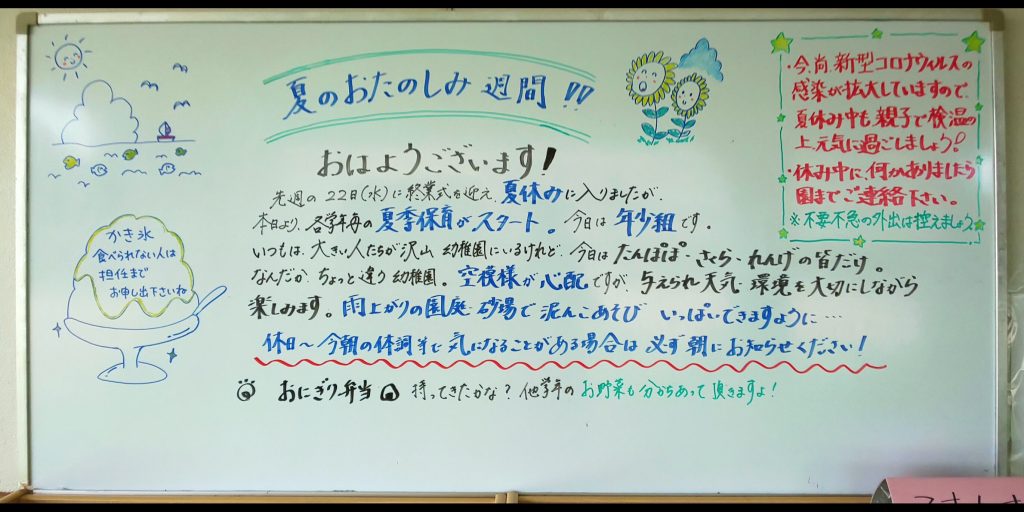 夏のおたのしみ週間!!
おはようございます!
先週の22日(水)に終業式を迎え、夏休みに入りましたが、
本日より、各学年毎の夏季保育がスタート。今日は年少組です。
いつもは、大きい人たちが沢山 幼稚園にいるけれど、今日はたんぽぽ・さくら・れんげの皆だけ。
なんだか ちょっと違う 幼稚園。空模様が心配ですが、与えられた天気・環境を大切にしながら
楽しみます。雨上がりの園庭・砂場で泥んこあそび いっぱいできますように…
休日〜今朝の体調等で気になることがある場合は 必ず朝にお知らせください!
おにぎり弁当 持ってきたかな? 他学年のお野菜も分かちあって頂きますよ!
・今尚、新型コロナウィルスの
感染が拡大していますので、
夏休み中も親子で検温の
上、元気に過ごしましょう!
・休み中に何かありましたら
園までご連絡下さい。
※不要不急の外出は控えましょう。
かき氷
食べられない人は
担任まで
お申し出下さいね